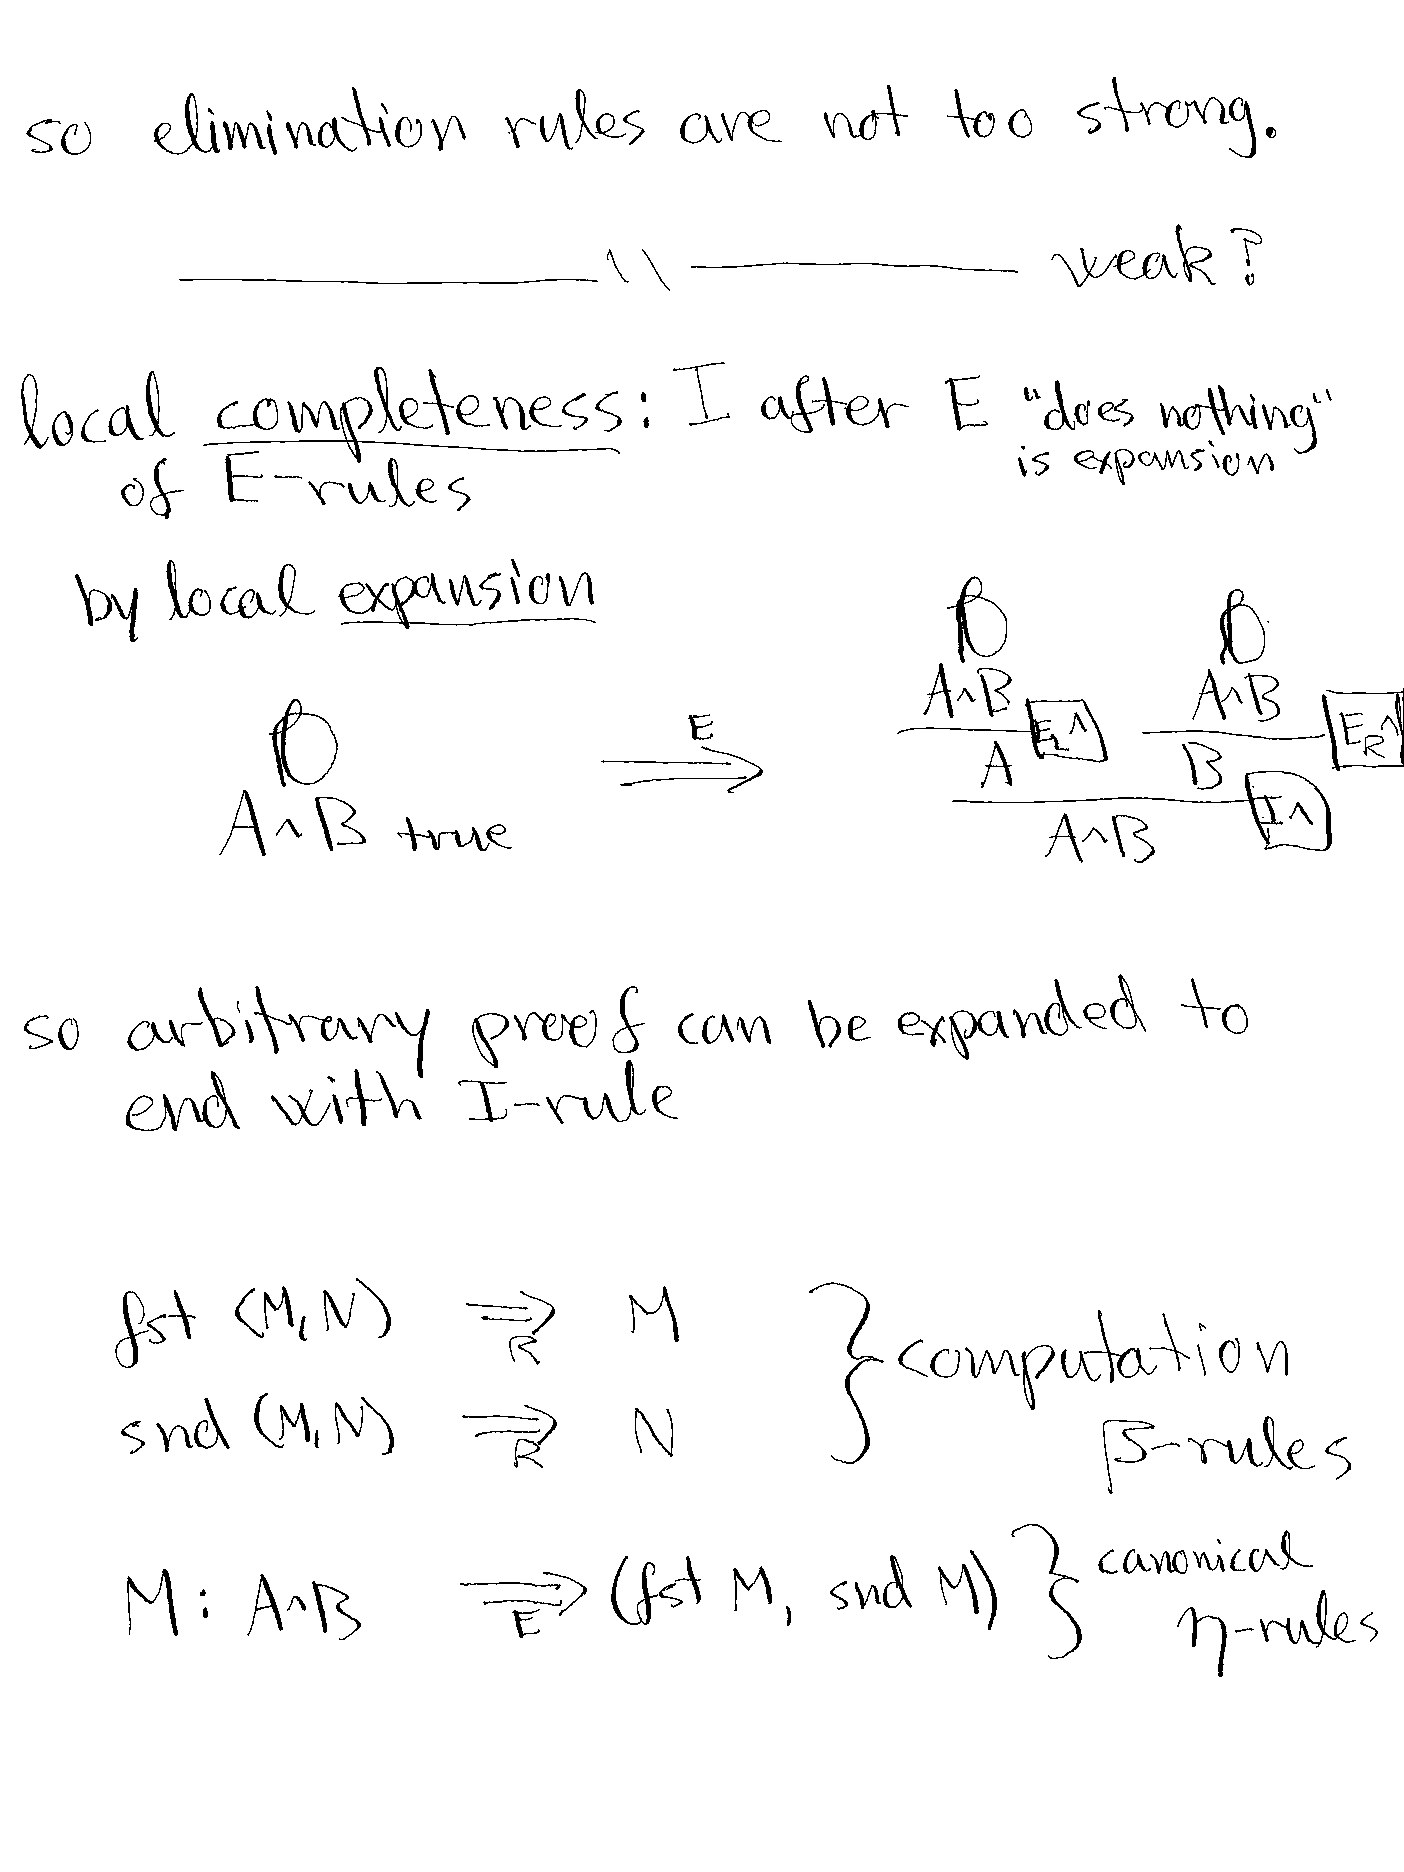 so elimination rules are not too strong.
———— \\ ———— weak?
local completeness: I after E "does nothing"
is expansion
of E-rules
by local expansion
D D
A∧B A∧B
E_L∧ E_R∧
D ⟹E A B
I∧
A∧B true A∧B
so arbitrary proof can be expanded to
end with I-rule
fst (M,N) ⟹R M
computation
snd (M,N) ⟹R N
β-rules
M : A∧B ⟹E (fst M, snd M) } canonical
η-rules